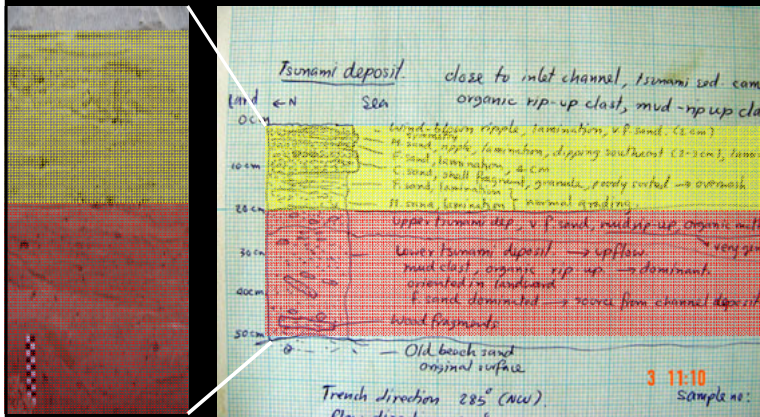 Tsunami deposit. close to inlet channel, tsunami sed. cam
Land ← N Sea organic rip-up clast, mud-rip up cla
0cm
Wind-blown ripple, lamination, v f. sand. (2 cm)
M. sand, ripple, lamination, dipping southeast (2-3cm),
10cm
F. sand, lamination, 2 cm
C. sand, shell fragment, granule, poorly sorted → overwash
F. sand, lamination
M. sand, lamination normal grading.
20cm
upper tsunami dep, v f sand, mud rip up, organic
30cm
Lower tsunami deposit → upflow
mud clast, organic rip-up → dominant.
oriented in landward
40cm
f sand dominated → source from channel deposit
Wood fragments
50cm
Old beach sand
original surface
3 11:10
Trench direction 285° (NW). sample no: